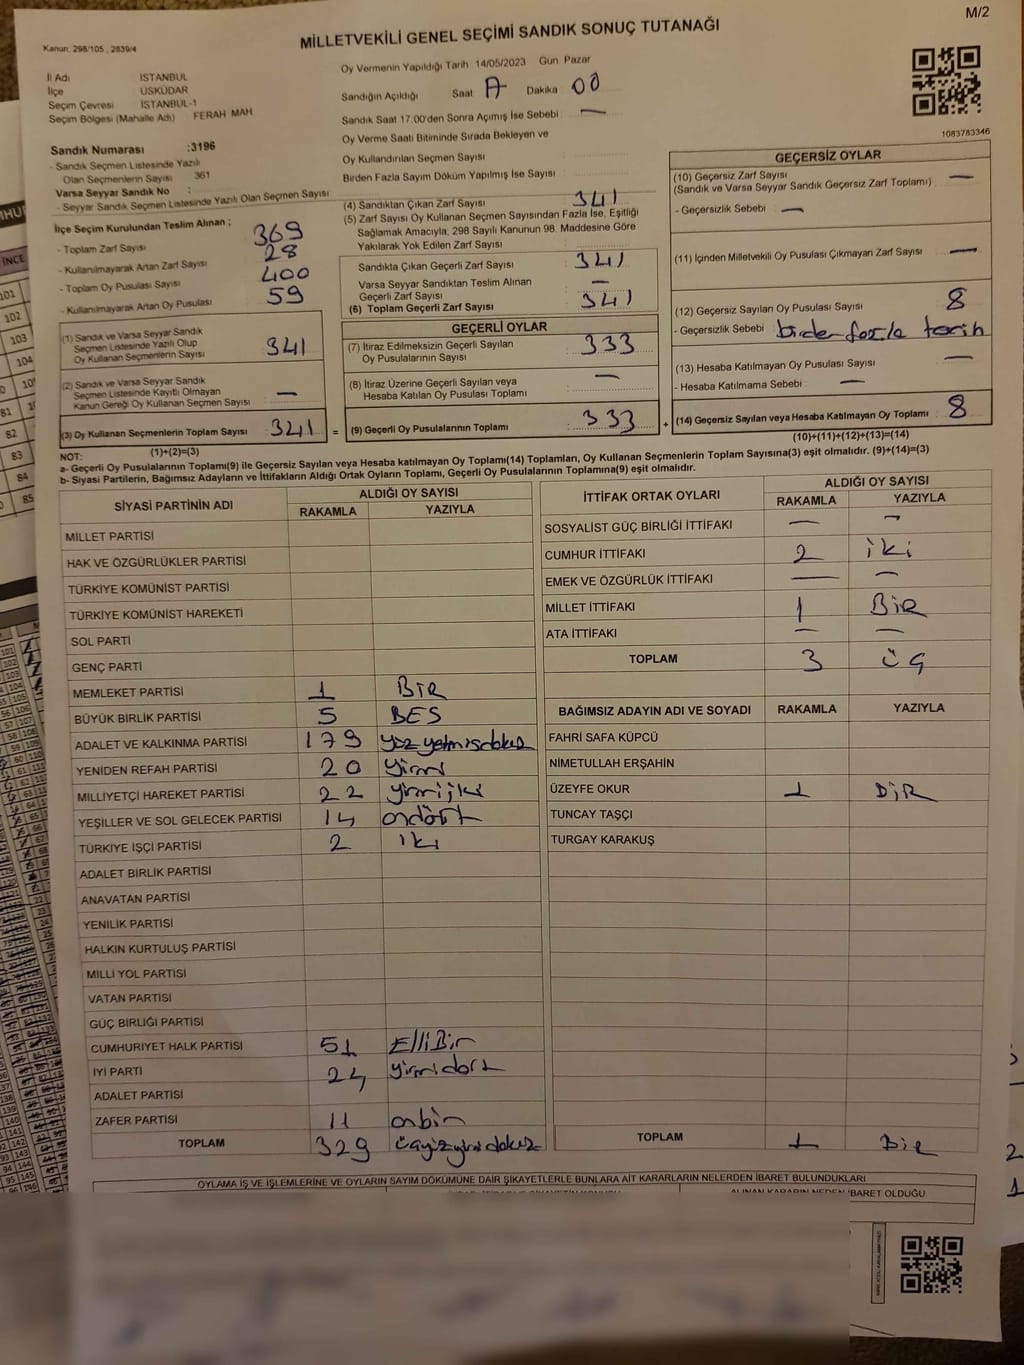 M/2
Kanun: 298/105 , 2839/4
MİLLETVEKİLİ GENEL SEÇİMİ SANDIK SONUÇ TUTANAĞI
İl Adı İSTANBUL
İlçe ÜSKÜDAR
Seçim Çevresi İSTANBUL-1
Seçim Bölgesi (Mahalle Adı) FERAH MAH
Sandık Numarası :3196
- Sandık Seçmen Listesinde Yazılı
Olan Seçmenlerin Sayısı 361
Varsa Seyyar Sandık No :
- Seyyar Sandık Seçmen Listesinde Yazılı Olan Seçmen Sayısı
İlçe Seçim Kurulundan Teslim Alınan ;
- Toplam Zarf Sayısı 369
- Kullanılmayarak Artan Zarf Sayısı 28
- Toplam Oy Pusulası Sayısı 400
- Kullanılmayarak Artan Oy Pusulası 59
(1) Sandık ve Varsa Seyyar Sandık
Seçmen Listesinde Yazılı Olup
Oy Kullanan Seçmenlerin Sayısı 341
(2) Sandık ve Varsa Seyyar Sandık
Seçmen Listesinde Kayıtlı Olmayan
Kanun Gereği Oy Kullanan Seçmen Sayısı —
(3) Oy Kullanan Seçmenlerin Toplam Sayısı 341 =
(1)+(2)=(3)
Oy Vermenin Yapıldığı Tarih 14/05/2023 Gün Pazar
Sandığın Açıldığı Saat Dakika 00
Sandık Saat 17.00'den Sonra Açımış İse Sebebi : —
Oy Verme Saati Bitiminde Sırada Bekleyen ve
Oy Kullandırılan Seçmen Sayısı :
Birden Fazla Sayım Döküm Yapılmış İse Sayısı :
(4) Sandıktan Çıkan Zarf Sayısı 341
(5) Zarf Sayısı Oy Kullanan Seçmen Sayısından Fazla İse, Eşitliği
Sağlamak Amacıyla, 298 Sayılı Kanunun 98. Maddesine Göre
Yakılarak Yok Edilen Zarf Sayısı :
Sandıkta Çıkan Geçerli Zarf Sayısı : 341
Varsa Seyyar Sandıktan Teslim Alınan
Geçerli Zarf Sayısı : —
(6) Toplam Geçerli Zarf Sayısı : 341
GEÇERLİ OYLAR
(7) İtiraz Edilmeksizin Geçerli Sayılan
Oy Pusulalarının Sayısı : 333
(8) İtiraz Üzerine Geçerli Sayılan veya
Hesaba Katılan Oy Pusulası Toplamı : —
(9) Geçerli Oy Pusulalarının Toplamı : 333 +
1083783346
GEÇERSİZ OYLAR
(10) Geçersiz Zarf Sayısı :
(Sandık ve Varsa Seyyar Sandık Geçersiz Zarf Toplamı) —
- Geçersizlik Sebebi : —
(11) İçinden Milletvekili Oy Pusulası Çıkmayan Zarf Sayısı : —
(12) Geçersiz Sayılan Oy Pusulası Sayısı : 8
- Geçersizlik Sebebi :
(13) Hesaba Katılmayan Oy Pusulası Sayısı : —
- Hesaba Katılmama Sebebi : —
(14) Geçersiz Sayılan veya Hesaba Katılmayan Oy Toplamı : 8
(10)+(11)+(12)+(13)=(14)
NOT:
a- Geçerli Oy Pusulalarının Toplamı(9) ile Geçersiz Sayılan veya Hesaba katılmayan Oy Toplamı(14) Toplamları, Oy Kullanan Seçmenlerin Toplam Sayısına(3) eşit olmalıdır. (9)+(14)=(3)
b- Siyasi Partilerin, Bağımsız Adayların ve İttifakların Aldığı Ortak Oyların Toplamı, Geçerli Oy Pusulalarının Toplamına(9) eşit olmalıdır.
SİYASİ PARTİNİN ADI ALDIĞI OY SAYISI
RAKAMLA YAZIYLA
MİLLET PARTİSİ
HAK VE ÖZGÜRLÜKLER PARTİSİ
TÜRKİYE KOMÜNİST PARTİSİ
TÜRKİYE KOMÜNİST HAREKETİ
SOL PARTİ
GENÇ PARTİ
MEMLEKET PARTİSİ 1 BİR
BÜYÜK BİRLİK PARTİSİ 5 BES
ADALET VE KALKINMA PARTİSİ 179 yüzyetmişdokuz
YENİDEN REFAH PARTİSİ 20
MİLLİYETÇİ HAREKET PARTİSİ 22
YEŞİLLER VE SOL GELECEK PARTİSİ 14 ondört
TÜRKİYE İŞÇİ PARTİSİ 2 iki
ADALET BİRLİK PARTİSİ
ANAVATAN PARTİSİ
YENİLİK PARTİSİ
HALKIN KURTULUŞ PARTİSİ
MİLLİ YOL PARTİSİ
VATAN PARTİSİ
GÜÇ BİRLİĞİ PARTİSİ
CUMHURİYET HALK PARTİSİ 51 ElliBir
İYİ PARTİ 24 yirmidört
ADALET PARTİSİ
ZAFER PARTİSİ 11 onbir
TOPLAM 329 üçyüzyirmidokuz
İTTİFAK ORTAK OYLARI ALDIĞI OY SAYISI
RAKAMLA YAZIYLA
SOSYALİST GÜÇ BİRLİĞİ İTTİFAKI — —
CUMHUR İTTİFAKI 2 iki
EMEK VE ÖZGÜRLÜK İTTİFAKI — —
MİLLET İTTİFAKI 1 BİR
ATA İTTİFAKI — —
TOPLAM 3 üç
BAĞIMSIZ ADAYIN ADI VE SOYADI RAKAMLA YAZIYLA
FAHRİ SAFA KÜPCÜ
NİMETULLAH ERŞAHİN
ÜZEYFE OKUR 1 BİR
TUNCAY TAŞÇI
TURGAY KARAKUŞ
TOPLAM 1 BİR
OYLAMA İŞ VE İŞLEMLERİNE VE OYLARIN SAYIM DÖKÜMÜNE DAİR ŞİKAYETLERLE BUNLARA AİT KARARLARIN NELERDEN İBARET BULUNDUKLARI
ALINAN KARARIN NEDEN İBARET OLDUĞU